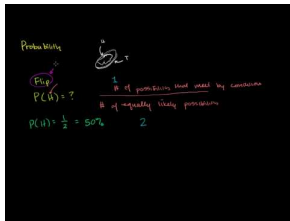 Probability
H
T
Flip
P(H) = ?
1
# of possibilities that meet my conditions
# of equally likely possibilities
P(H) = 1/2 = 50%
2